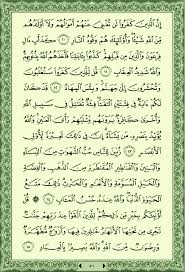 إِنَّ الَّذِينَ كَفَرُوا لَن تُغْنِيَ عَنْهُمْ أَمْوَالُهُمْ وَلَا أَوْلَادُهُم
مِّنَ اللَّهِ شَيْئًا وَأُولَٰئِكَ هُمْ وَقُودُ النَّارِ ١٠ كَدَأْبِ آلِ
فِرْعَوْنَ وَالَّذِينَ مِن قَبْلِهِمْ كَذَّبُوا بِآيَاتِنَا فَأَخَذَهُمُ اللَّهُ بِذُنُوبِهِمْ
وَاللَّهُ شَدِيدُ الْعِقَابِ ١١ قُل لِّلَّذِينَ كَفَرُوا سَتُغْلَبُونَ
وَتُحْشَرُونَ إِلَىٰ جَهَنَّمَ وَبِئْسَ الْمِهَادُ ١٢ قَدْ كَانَ
لَكُمْ آيَةٌ فِي فِئَتَيْنِ الْتَقَتَا فِئَةٌ تُقَاتِلُ فِي سَبِيلِ اللَّهِ
وَأُخْرَىٰ كَافِرَةٌ يَرَوْنَهُم مِّثْلَيْهِمْ رَأْيَ الْعَيْنِ وَاللَّهُ
يُؤَيِّدُ بِنَصْرِهِ مَن يَشَاءُ إِنَّ فِي ذَٰلِكَ لَعِبْرَةً لِّأُولِي
الْأَبْصَارِ ١٣ زُيِّنَ لِلنَّاسِ حُبُّ الشَّهَوَاتِ مِنَ النِّسَاءِ
وَالْبَنِينَ وَالْقَنَاطِيرِ الْمُقَنطَرَةِ مِنَ الذَّهَبِ وَالْفِضَّةِ
وَالْخَيْلِ الْمُسَوَّمَةِ وَالْأَنْعَامِ وَالْحَرْثِ ذَٰلِكَ مَتَاعُ
الْحَيَاةِ الدُّنْيَا وَاللَّهُ عِندَهُ حُسْنُ الْمَآبِ ١٤ قُلْ
أَؤُنَبِّئُكُم بِخَيْرٍ مِّن ذَٰلِكُمْ لِلَّذِينَ اتَّقَوْا عِندَ رَبِّهِمْ جَنَّاتٌ
تَجْرِي مِن تَحْتِهَا الْأَنْهَارُ خَالِدِينَ فِيهَا وَأَزْوَاجٌ مُّطَهَّرَةٌ
وَرِضْوَانٌ مِّنَ اللَّهِ وَاللَّهُ بَصِيرٌ بِالْعِبَادِ ١٥